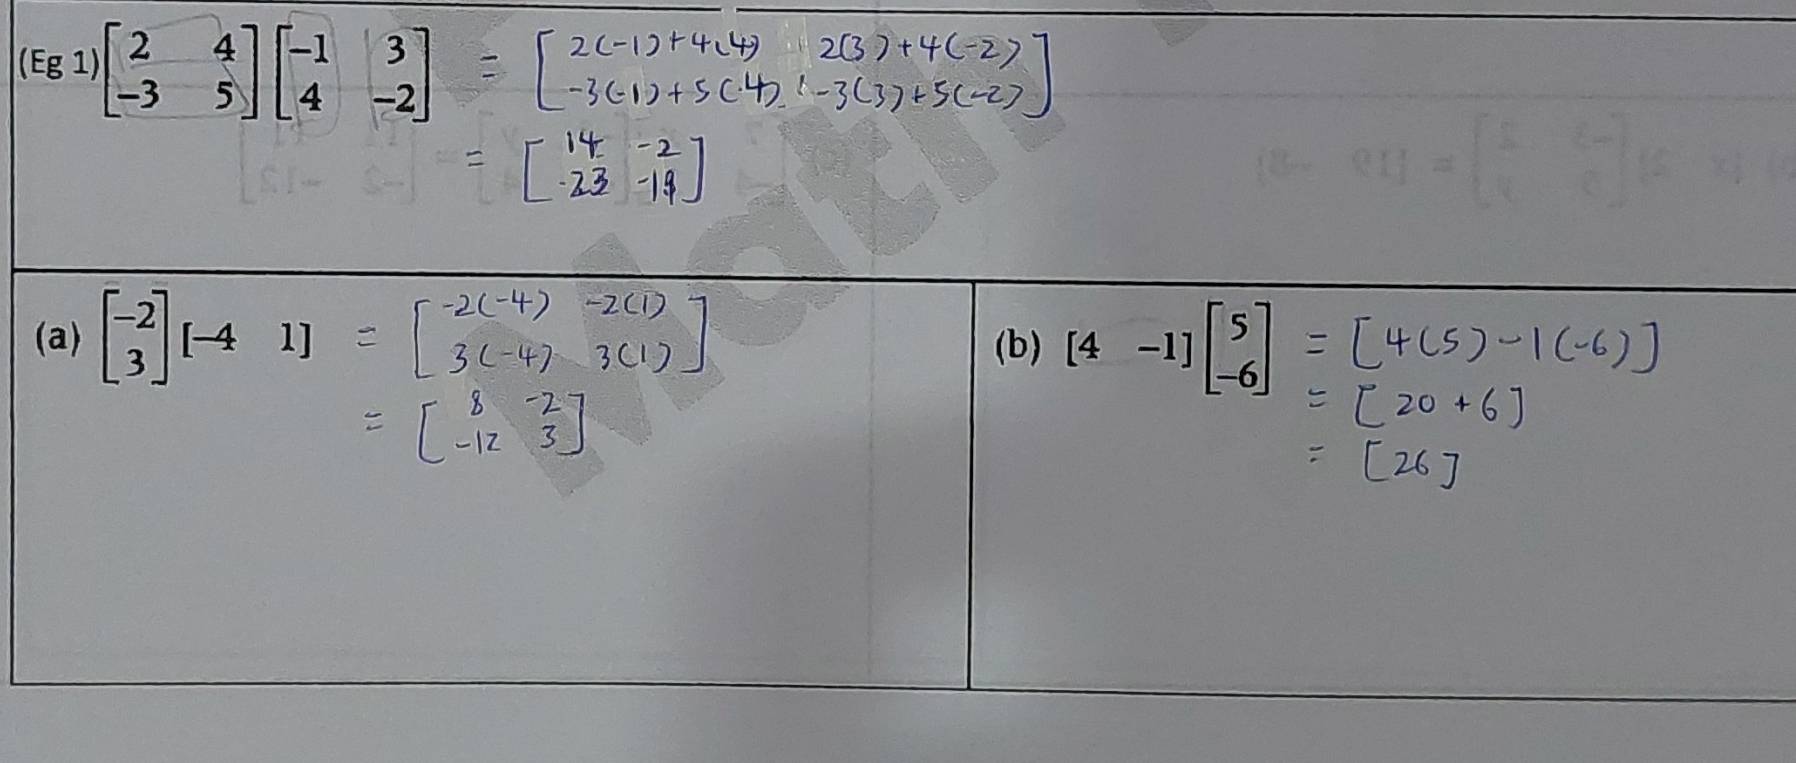 (Eg 1) [2 4; −3 5] [−1 3; 4 −2] = [2(-1)+4(4) 2(3)+4(-2); -3(-1)+5(4) -3(3)+5(-2)]
= [14 -2; 23 -19]
(a) [−2; 3] [−4 1] = [-2(-4) -2(1); 3(-4) 3(1)]
= [8 -2; -12 3]
(b) [4 −1] [5; −6] = [4(5)-1(-6)]
= [20+6]
= [26]
Math